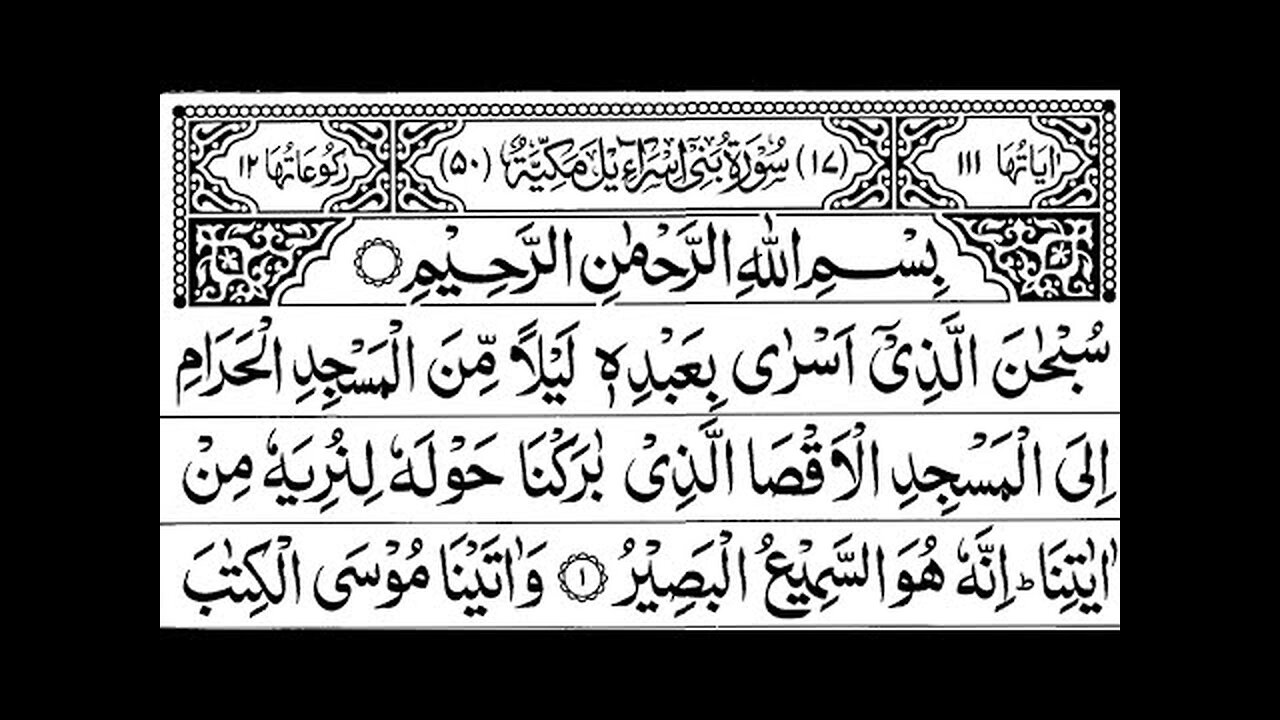 اٰیَاتُهَا ١١١ (١٧) سُوْرَةُ بَنِیْۤ اِسْرَآءِیْلَ مَكِّیَّةٌ (٥٠) رُكُوْعَاتُهَا ١٢
بِسْمِ اللّٰهِ الرَّحْمٰنِ الرَّحِیْمِ
سُبْحٰنَ الَّذِیْۤ اَسْرٰی بِعَبْدِهٖ لَیْلًا مِّنَ الْمَسْجِدِ الْحَرَامِ
اِلَی الْمَسْجِدِ الْاَقْصَا الَّذِیْ بٰرَكْنَا حَوْلَهٗ لِنُرِیَهٗ مِنْ
اٰیٰتِنَا ؕ اِنَّهٗ هُوَ السَّمِیْعُ الْبَصِیْرُ ١ وَاٰتَیْنَا مُوْسَی الْكِتٰبَ